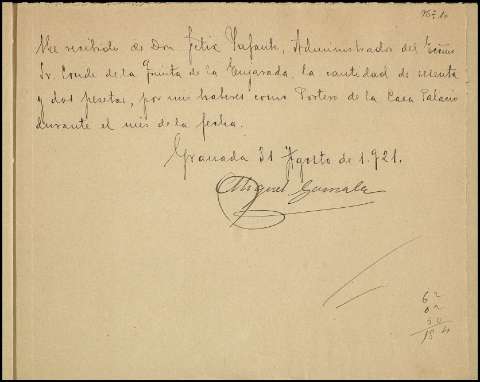 He recibido de Don Felix Infante, Administrador del Excmo
Sr. Conde de la Quinta de la Enjarada, la cantidad de sesenta
y dos pesetas, por mis haberes como Portero de la Casa Palacio
durante el mes de la fecha.
Granada 31 Agosto de 1.921.
Miguel Gonzalez
62
62